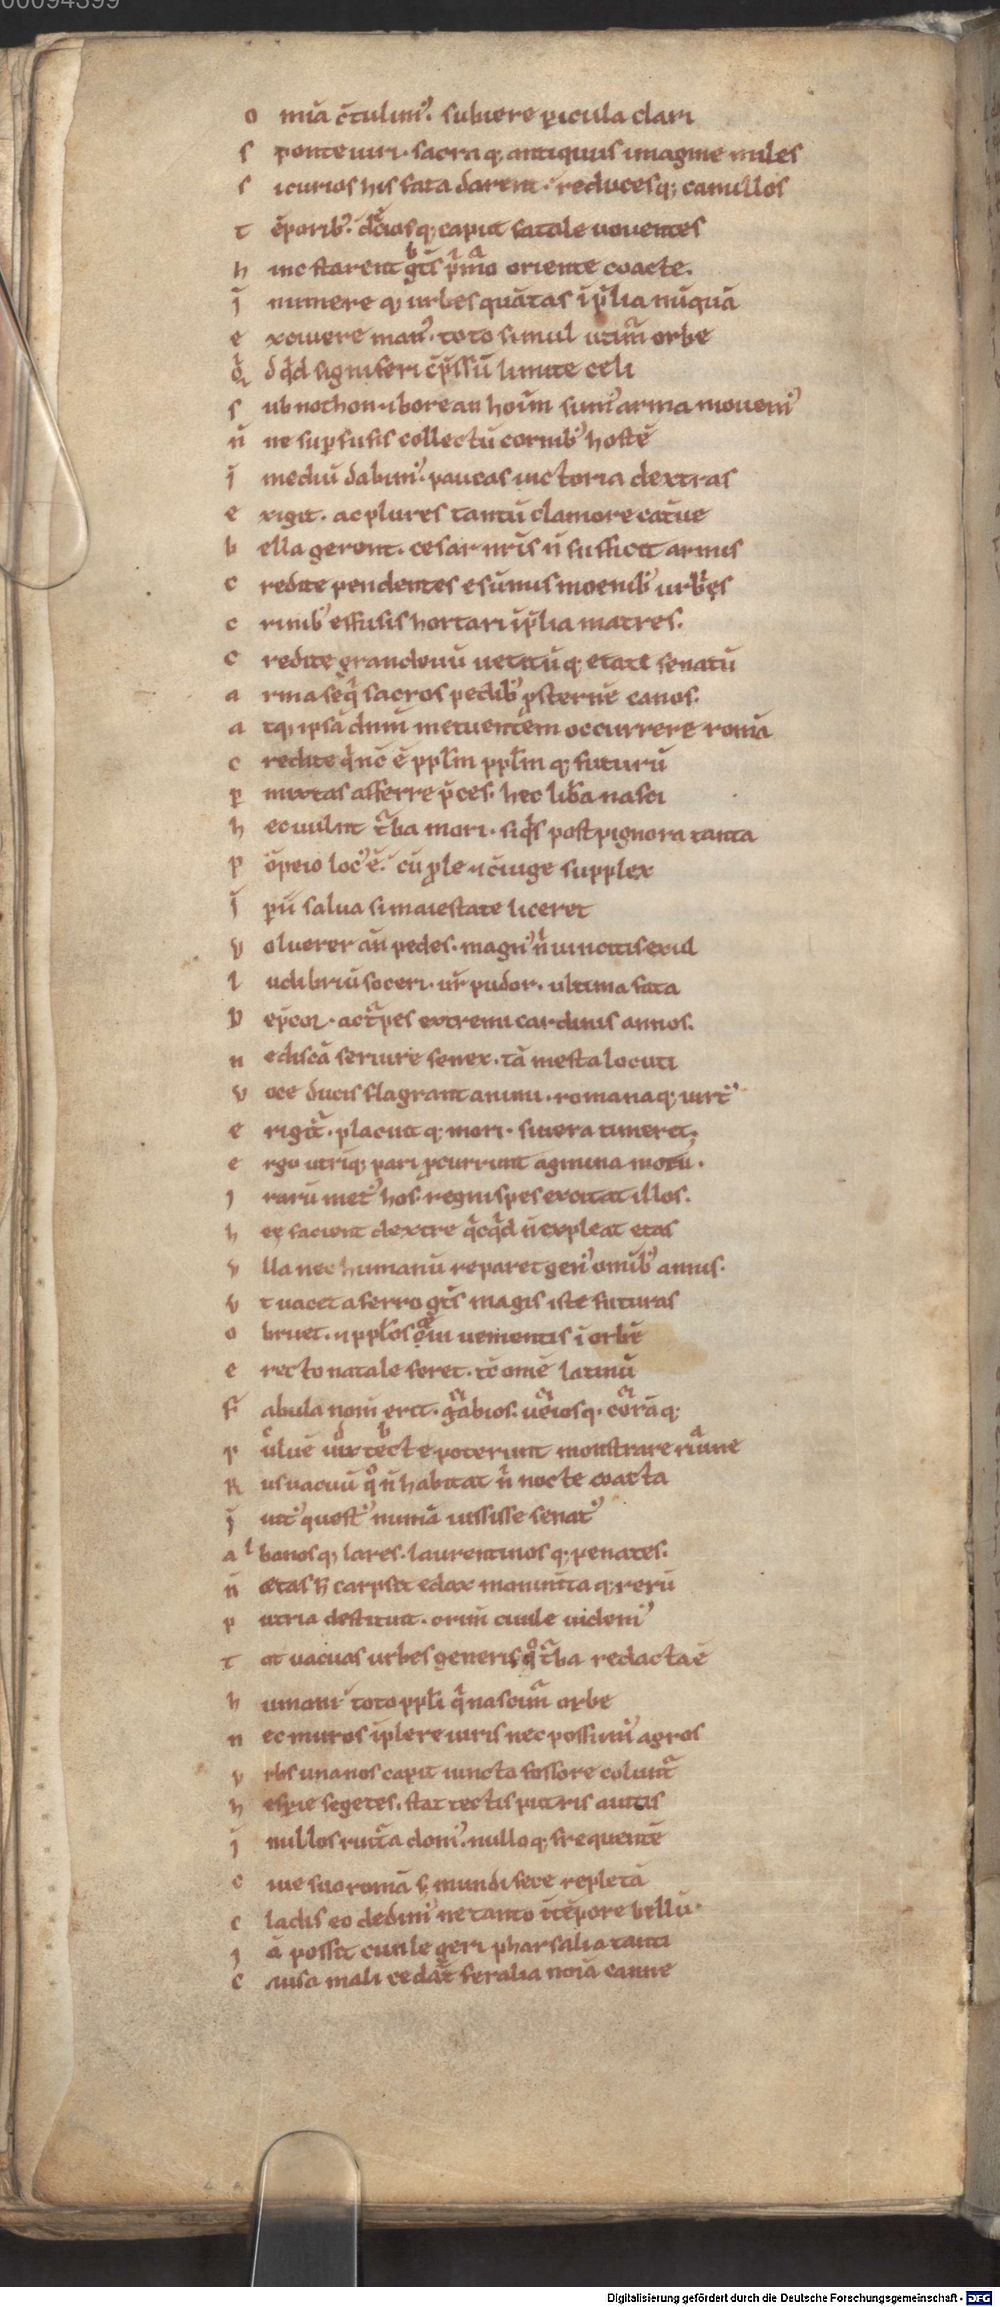 00094399
o mīa c̄tulim᾿. subiere ꝑicula clari
s ponte uiri. sacraq; antiquus imagine miles
s icurios his fata darent. reducesq; camillos
t ēporib᾿. deciosq; caput fatale uouentes
h inc starent gētˢ pⁱmᵒ oriente coacte.
ī numere q; urbes quātas ī p̄lia nūquā
e xciuere man᾿. toto simul utimᷓ orbe
q̄ dqͥd signiferi cp̄ssū limite celi
s ub nothon ⁊ borean hoīm sum᾿ arma mouem᾿
ñ ne supfusis collectū cornib᾿ hostē
ī mediū dabim᾿. paucas uictoria dextras
e xigit. ac plures tantū clamore catūe
b ella gerent. cesar nr̄is ñ sufficit armis
c redite pendentes e sūmis moenib᾿ urbˢ
c rinib᾿ effusis hortari īp̄lia matres.
c redite grandeuū uetitūq; etate senatū
a rma seqͥ sacros pedib᾿ ꝓsternē canos.
a tq; ipsā dn̄m metuentem occurrere romā
c redite qͥ nc̄ ē ppl̄m ppl̄m q; futurū
p mixtas afferre p̄ces. hec lib̄a nasci
h ec uult tᷓba mori. siqͥs post pignora tanta
p ōpeio loc᾿ ē. cū ꝓle ⁊ c̄iuge supplex
ī periū salua si maiestate liceret
v oluerer an̄ pedes. magn᾿ nͥ uincitis exul
l udibriū soceri. ur̄ pudor. ultima fata
D ep̄coꝛ. actᷓpes extremi cardinis annos.
n ediscā seruire senex. tā mesta locuti
v oce ducis flagrant animi. romanaq; uirt᾿
e rigitᷓ. placuit q; mori. si uera timeret.
e rgo utriq; pari ꝓcurrunt agmina motu.
i rarū met᾿ hos. regni spes excitat illos.
h ee facient dextre qͥcqͥd ñ expleat etas
v lla nec humanū reparet gen᾿ omīb᾿ annis.
v t uacet a ferro gētˢ magis iste futuras
o bruet. ⁊ ppl̄os eui uenientis ī orbē
e recto natale feret. tc̄ ome᷑ latinū
F abula nom̄ erit. gabios. ueiosq. corāq;
p uluē uix tecte poterunt monstrare ruine
R us uacuū qͦ ñ habitat nͥ nocte coacta
ī uit᾿ quest᾿ numā iussisse senat᾿
a lbanosq; lares. laurentinos q; penates.
ñ etas h̄ carpsit edax monimītaq; rerū
p utria destituit. crim̄ ciuile uidem᾿
t ot uacuas urbes generis qͦ tᷓba redacta ē
h umani toto ppl̄i qͥ nascimᷓ orbe
n ec muros īplere uiris nec possum᾿ agros
v rbs una nos capit uincto fossore coluntᷓ
h esp̄ie segetes. stat tectis putris auitis
ī nullos ruitᷓa dom᾿. nulloq; frequentē
c iue suo romā s; mundi fece repletā
c ladis eo dedim᾿ ne tanto ītēpore bellū.
i ā possit ciuile geri pharsalia tanti
c ausa mali cedāt feralia noīa canne
Digitalisierung gefördert durch die Deutsche Forschungsgemeinschaft - DFG